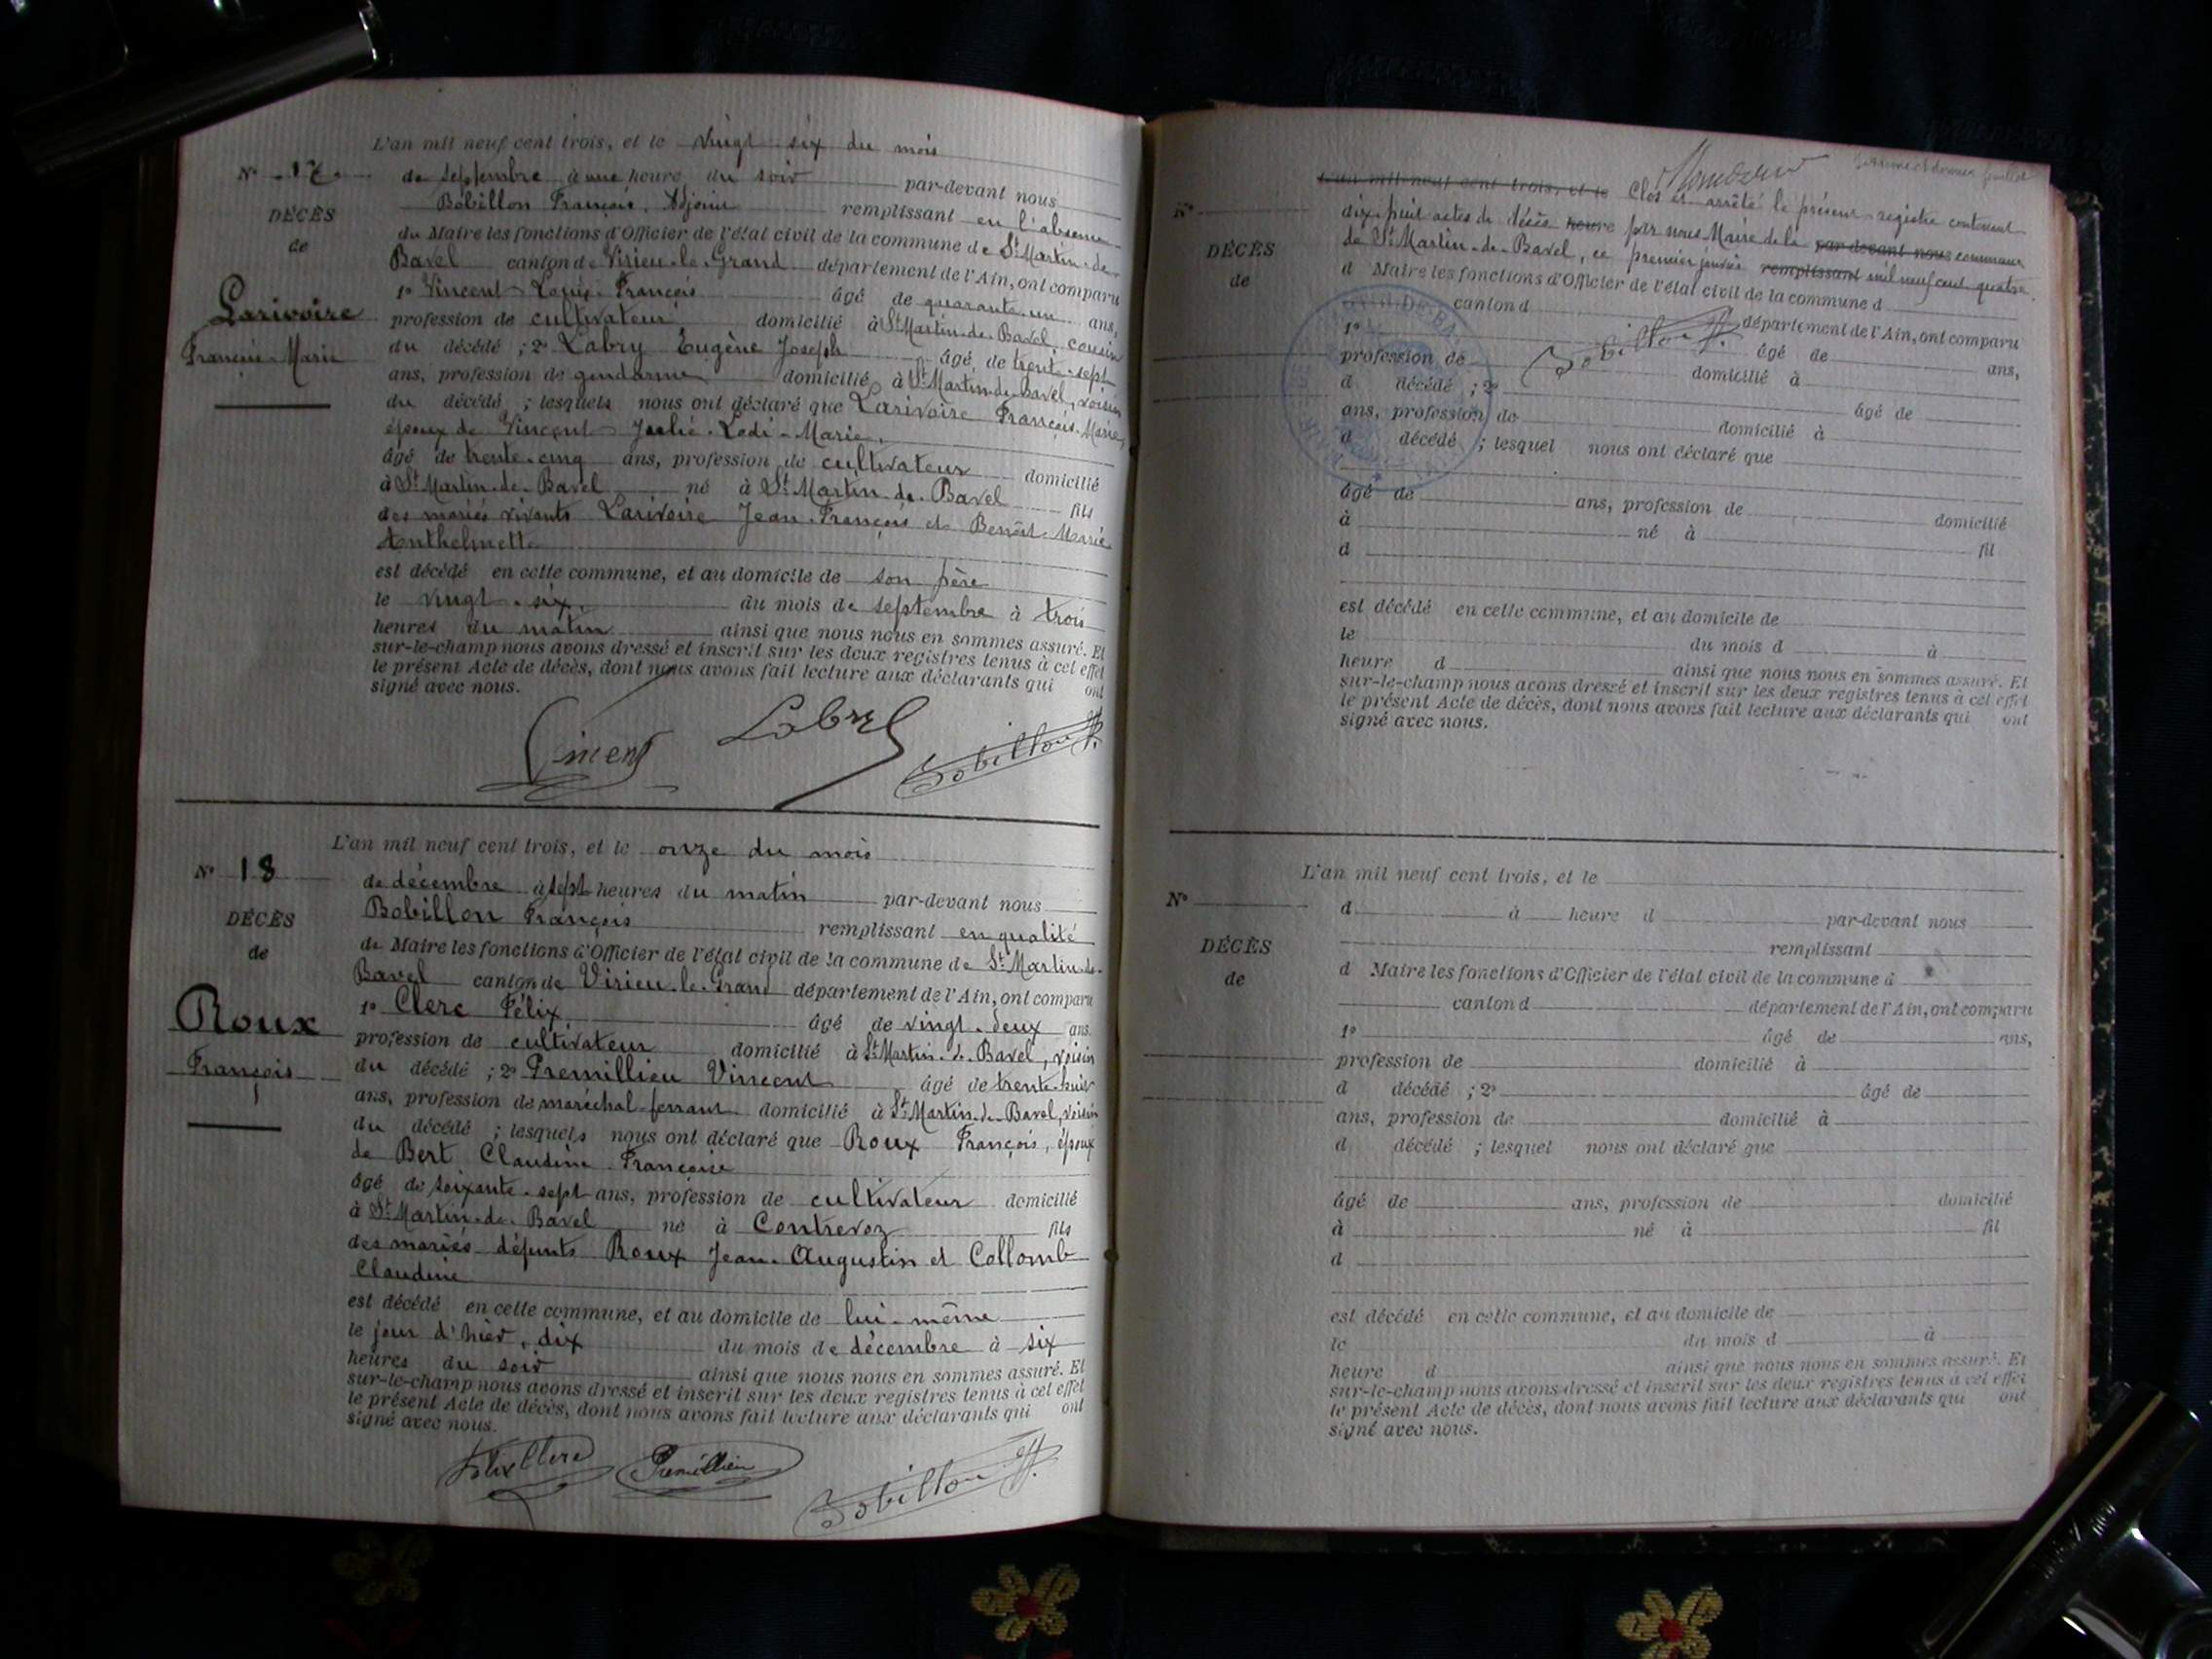 L'an mil neuf cent trois, et le vingt six du mois
N° 17
de septembre à une heure du soir par-devant nous
DÉCÈS
de
Bobillon François, Adjoint remplissant en l'absence
du Maire les fonctions d'Officier de l'état civil de la commune de St Martin-de-
Bavel canton de Virieu-le-Grand département de l'Ain, ont comparu
1° Vincent Louis-François âgé de quarante-un ans,
Larivoire
François-Marie
profession de cultivateur domicilié à St Martin-de-Bavel, cousin
du décédé ; 2° Labry Eugène Joseph âgé de trente-sept
ans, profession de gendarme domicilié à St Martin-de-Bavel, voisin
du décédé ; lesquels nous ont déclaré que Larivoire François-Marie,
époux de Vincent Marie,
âgé de trente-cinq ans, profession de cultivateur domicilié
à St Martin-de-Bavel né à St Martin-de-Bavel fils
des mariés vivants Larivoire Jean-François et Benoît-Marie
Anthelmette
est décédé en cette commune, et au domicile de son père
le vingt-six du mois de septembre à trois
heures du matin ainsi que nous nous en sommes assuré. Et
sur-le-champ nous avons dressé et inscrit sur les deux registres tenus à cet effet
le présent Acte de décès, dont nous avons fait lecture aux déclarants qui ont
signé avec nous.
Vincent Labry Bobillon F.
L'an mil neuf cent trois, et le onze du mois
N° 18
de décembre à sept heures du matin par-devant nous
DÉCÈS
de
Bobillon François remplissant en qualité
de Maire les fonctions d'Officier de l'état civil de la commune de St Martin-de-
Bavel canton de Virieu-le-Grand département de l'Ain, ont comparu
1° Clerc Félix âgé de vingt-deux ans.
Roux
François
profession de cultivateur domicilié à St Martin-de-Bavel, voisin
du décédé ; 2° Premillieu Vincent âgé de trente-huit
ans, profession de maréchal-ferrant domicilié à St Martin-de-Bavel, voisin
du décédé ; lesquels nous ont déclaré que Roux François, époux
de Bert Claudine Françoise
âgé de soixante-sept ans, profession de cultivateur domicilié
à St Martin-de-Bavel né à Contrevoz fils
des mariés défunts Roux Jean-Augustin et Collomb
Claudine
est décédé en cette commune, et au domicile de lui-même
le jour d'hier, dix du mois de décembre à six
heures du soir ainsi que nous nous en sommes assuré. Et
sur-le-champ nous avons dressé et inscrit sur les deux registres tenus à cet effet
le présent Acte de décès, dont nous avons fait lecture aux déclarants qui ont
signé avec nous.
Félix Clerc Premillieu Bobillon F.
L'an mil neuf cent trois, et le Clos et arrêté le présent registre contenant
N°
dix-huit actes de décès heure par nous Maire de la par-devant nous commune
DÉCÈS
de
de St Martin-de-Bavel, ce premier janvier remplissant mil neuf cent quatre.
d Maire les fonctions d'Officier de l'état civil de la commune d
canton d département de l'Ain, ont comparu
Bobillon F.
1° âgé de ans,
profession de domicilié à
d décédé ; 2° âgé de
ans, profession de domicilié à
d décédé ; lesquel nous ont déclaré que
âgé de ans, profession de domicilié
à né à fil
d
est décédé en cette commune, et au domicile de
le du mois d à
heure d ainsi que nous nous en sommes assuré. Et
sur-le-champ nous avons dressé et inscrit sur les deux registres tenus à cet effet
le présent Acte de décès, dont nous avons fait lecture aux déclarants qui ont
signé avec nous.
L'an mil neuf cent trois, et le
N°
d à heure d par-devant nous
DÉCÈS
de
remplissant
d Maire les fonctions d'Officier de l'état civil de la commune d
canton d département de l'Ain, ont comparu
1° âgé de ans,
profession de domicilié à
d décédé ; 2° âgé de
ans, profession de domicilié à
d décédé ; lesquel nous ont déclaré que
âgé de ans, profession de domicilié
à né à fil
d
est décédé en cette commune, et au domicile de
le du mois d à
heure d ainsi que nous nous en sommes assuré. Et
sur-le-champ nous avons dressé et inscrit sur les deux registres tenus à cet effet
le présent Acte de décès, dont nous avons fait lecture aux déclarants qui ont
signé avec nous.